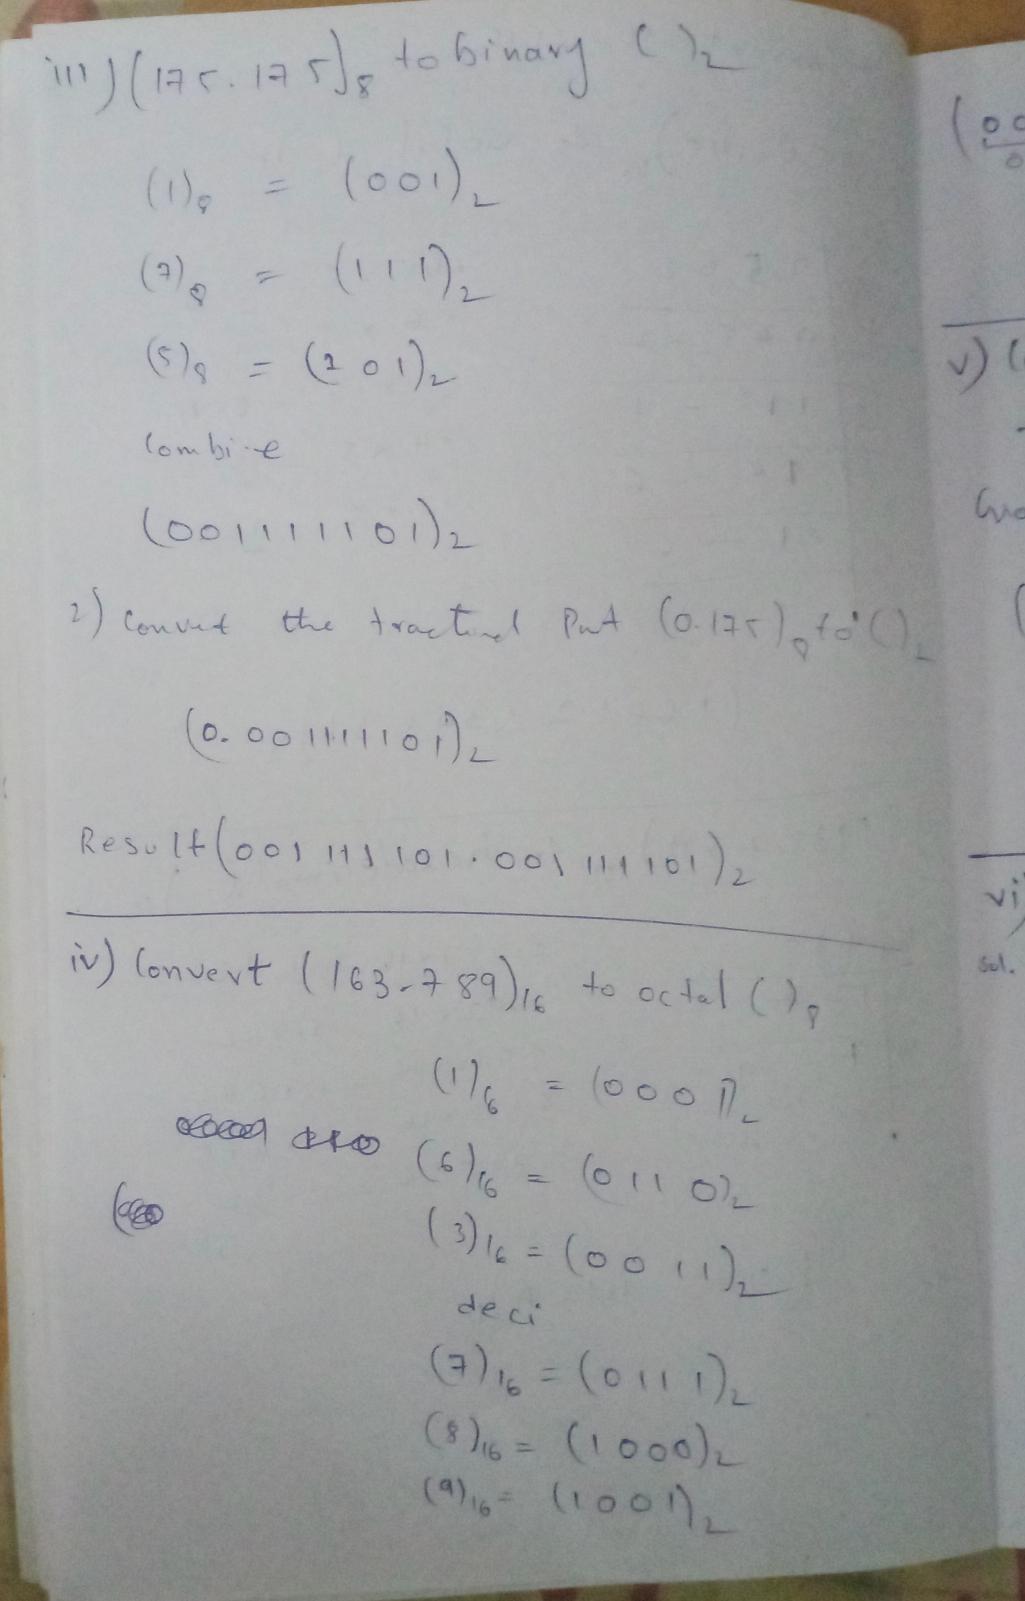 iii) (175.175)8 to binary ( )2
(1)8 = (001)2
(7)8 = (111)2
(5)8 = (101)2
Combine
(001111101)2
2) Convert the fractional Part (0.175)8 to ( )2
(0.001111101)2
Result (001 111 101.001 111 101)2
iv) Convert (163.789)16 to octal ( )8
(1)16 = (0001)2
(6)16 = (0110)2
(3)16 = (0011)2
deci
(7)16 = (0111)2
(8)16 = (1000)2
(9)16 = (1001)2
v) (
vi)
Sol.